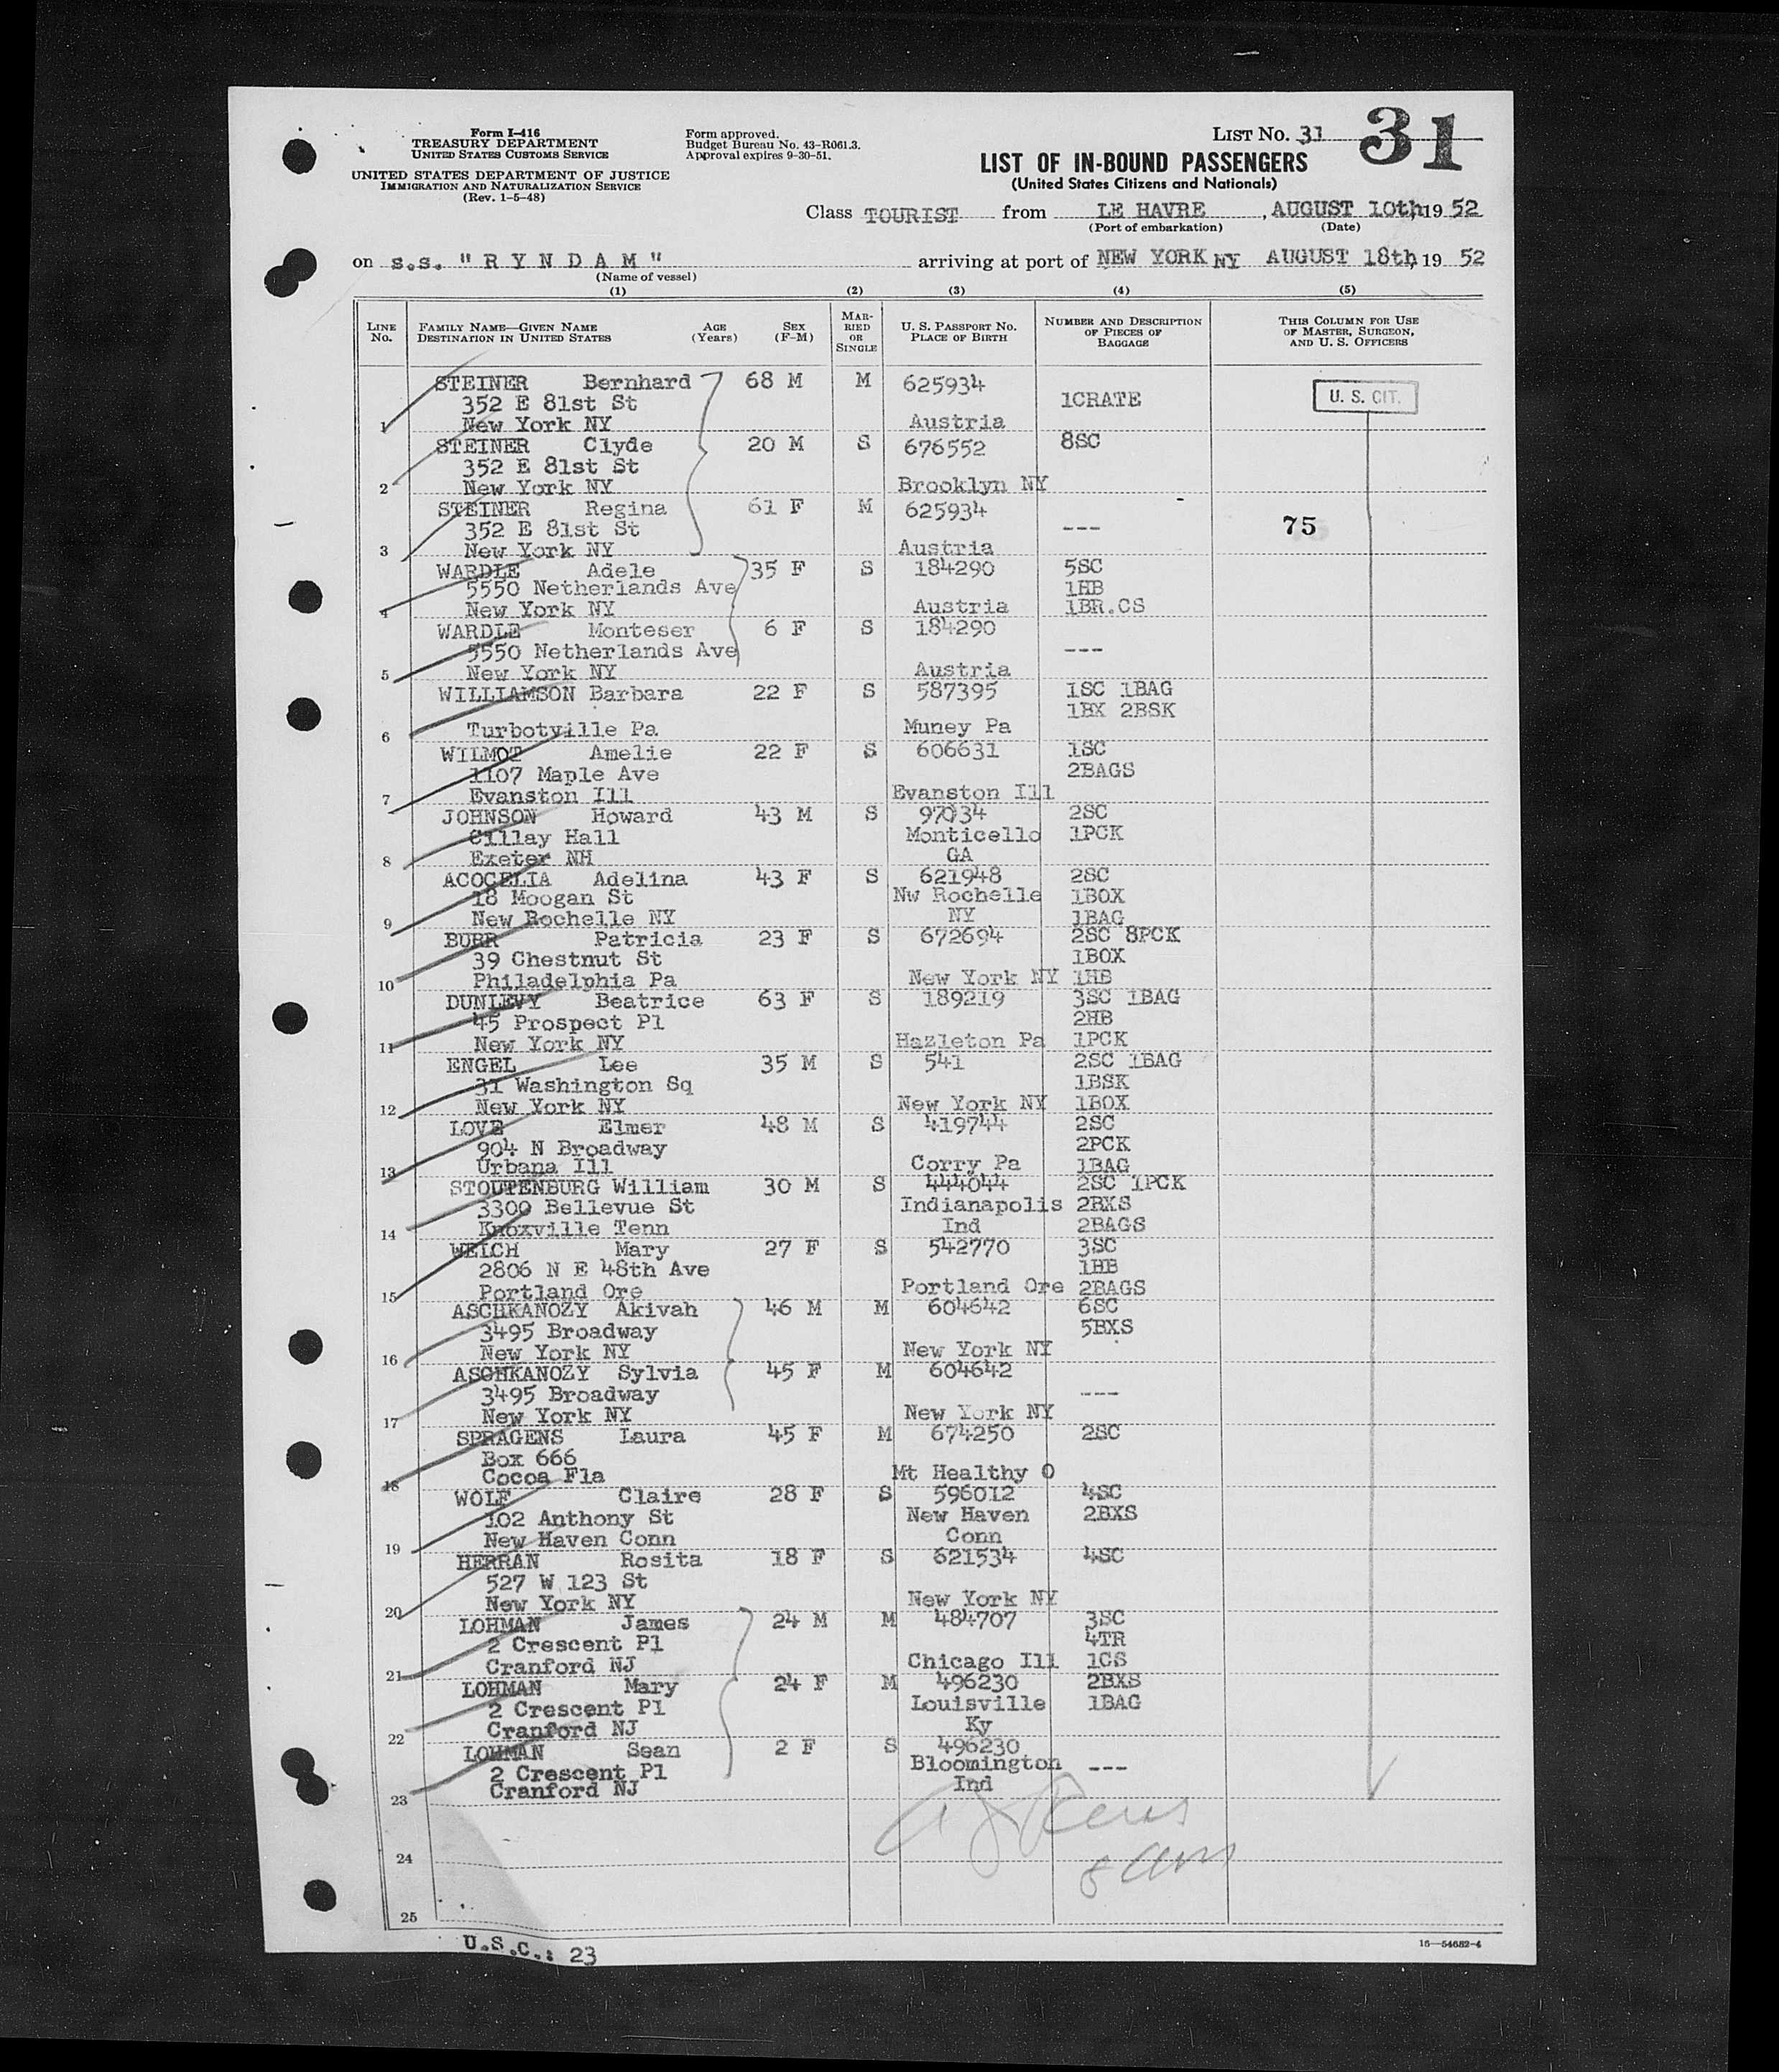 Form I-416
TREASURY DEPARTMENT
UNITED STATES CUSTOMS SERVICE
UNITED STATES DEPARTMENT OF JUSTICE
IMMIGRATION AND NATURALIZATION SERVICE
(Rev. 1-5-48)
Form approved.
Budget Bureau No. 43-R061.3.
Approval expires 9-30-51.
LIST No. 31
31
LIST OF IN-BOUND PASSENGERS
(United States Citizens and Nationals)
Class TOURIST from LE HAVRE, AUGUST 10th, 19 52
(Port of embarkation) (Date)
on s.s. "RYNDAM" arriving at port of NEW YORK NY AUGUST 18th, 19 52
(Name of vessel)
(1) (2) (3) (4) (5)
LINE No. FAMILY NAME—GIVEN NAME DESTINATION IN UNITED STATES AGE (Years) SEX (F-M) MARRIED OR SINGLE U. S. PASSPORT No. PLACE OF BIRTH NUMBER AND DESCRIPTION OF PIECES OF BAGGAGE THIS COLUMN FOR USE OF MASTER, SURGEON, AND U. S. OFFICERS
STEINER Bernhard 68 M M 625934 U. S. CIT.
352 E 81st St 1CRATE
1 New York NY Austria
STEINER Clyde 20 M S 676552 8SC
352 E 81st St
2 New York NY Brooklyn NY
STEINER Regina 61 F M 625934
352 E 81st St --- 75
3 New York NY Austria
WARDLE Adele 35 F S 184290 5SC
5550 Netherlands Ave 1HB
4 New York NY Austria 1BR.CS
WARDLE Monteser 6 F S 184290
5550 Netherlands Ave ---
5 New York NY Austria
WILLIAMSON Barbara 22 F S 587395 1SC 1BAG
1BX 2BSK
6 Turbotville Pa Muney Pa
WILMOT Amelie 22 F S 606631 1SC
1107 Maple Ave 2BAGS
7 Evanston Ill Evanston Ill
JOHNSON Howard 43 M S 97034 2SC
Cillay Hall Monticello 1PCK
8 Exeter NH GA
ACOCELIA Adelina 43 F S 621948 2SC
18 Moogan St Nw Rochelle 1BOX
9 New Rochelle NY NY 1BAG
BURR Patricia 23 F S 672694 2SC 8PCK
39 Chestnut St 1BOX
10 Philadelphia Pa New York NY 1HB
DUNLEVY Beatrice 63 F S 189219 3SC 1BAG
45 Prospect Pl 2HB
11 New York NY Hazleton Pa 1PCK
ENGEL Lee 35 M S 541 2SC 1BAG
31 Washington Sq 1BSK
12 New York NY New York NY 1BOX
LOVE Elmer 48 M S 419744 2SC
904 N Broadway 2PCK
13 Urbana Ill Corry Pa 1BAG
STOUTENBURG William 30 M S 444044 2SC 1PCK
3300 Bellevue St Indianapolis 2BXS
14 Knoxville Tenn Ind 2BAGS
WELCH Mary 27 F S 542770 3SC
2806 N E 48th Ave 1HB
15 Portland Ore Portland Ore 2BAGS
ASCHKANOZY Akivah 46 M M 604642 6SC
3495 Broadway 5BXS
16 New York NY New York NY
ASCHKANOZY Sylvia 45 F M 604642
3495 Broadway ---
17 New York NY New York NY
SPRAGENS Laura 45 F M 674250 2SC
Box 666
18 Cocoa Fla Mt Healthy O
WOLF Claire 28 F S 596012 4SC
102 Anthony St New Haven 2BXS
19 New Haven Conn Conn
HERRAN Rosita 18 F S 621534 4SC
527 W 123 St
20 New York NY New York NY
LOHMAN James 24 M M 484707 3SC
2 Crescent Pl 4TR
21 Cranford NJ Chicago Ill 1CS
LOHMAN Mary 24 F M 496230 2BXS
2 Crescent Pl Louisville 1BAG
22 Cranford NJ Ky
LOHMAN Sean 2 F S 496230
2 Crescent Pl Bloomington ---
23 Cranford NJ Ind
24
25
U.S.C.: 23
16—54682-4